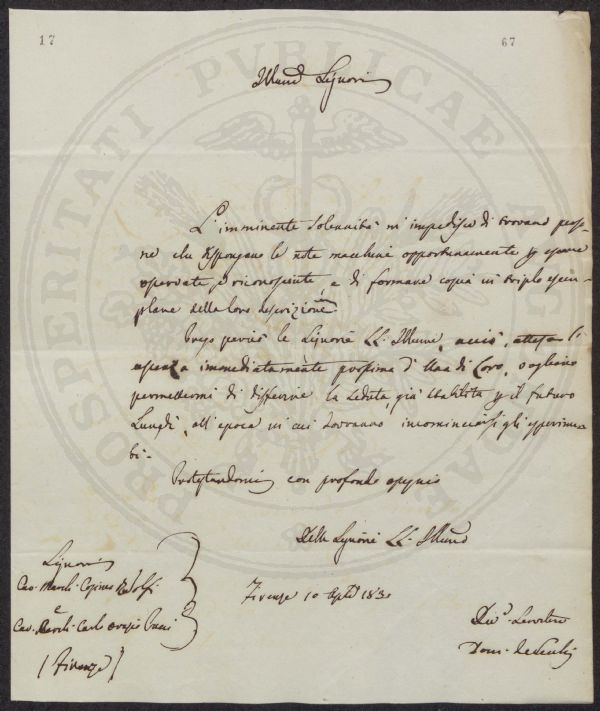 17
67
Illmi Signori
L'imminente Solennità m'impedisce di trovare perso-
ne che dispongano le note macchine opportunamente p essere
osservate, e riconosciute, e di formare copia in triplo esem-
plare della loro descrizione.
Prego perciò le Signorie LL. Illme, acciò, attesa l'
assenza immediatamente prossima d' Una di Loro, vogliano
permettermi di differire la seduta, già stabilita p il futuro
Lunedì, all'epoca in cui dovranno incominciarsi gli esperimen-
ti.
Protestandomi con profondo ossequio
Delle Signorie LL. Illme
Signori
Cav. March. Cosimo Ridolfi
Cav. March. Carlo Pucci
(Firenze)
Firenze 10 1830
Dev. Servitore
Dom.
PROSPERITATI PUBLICAE